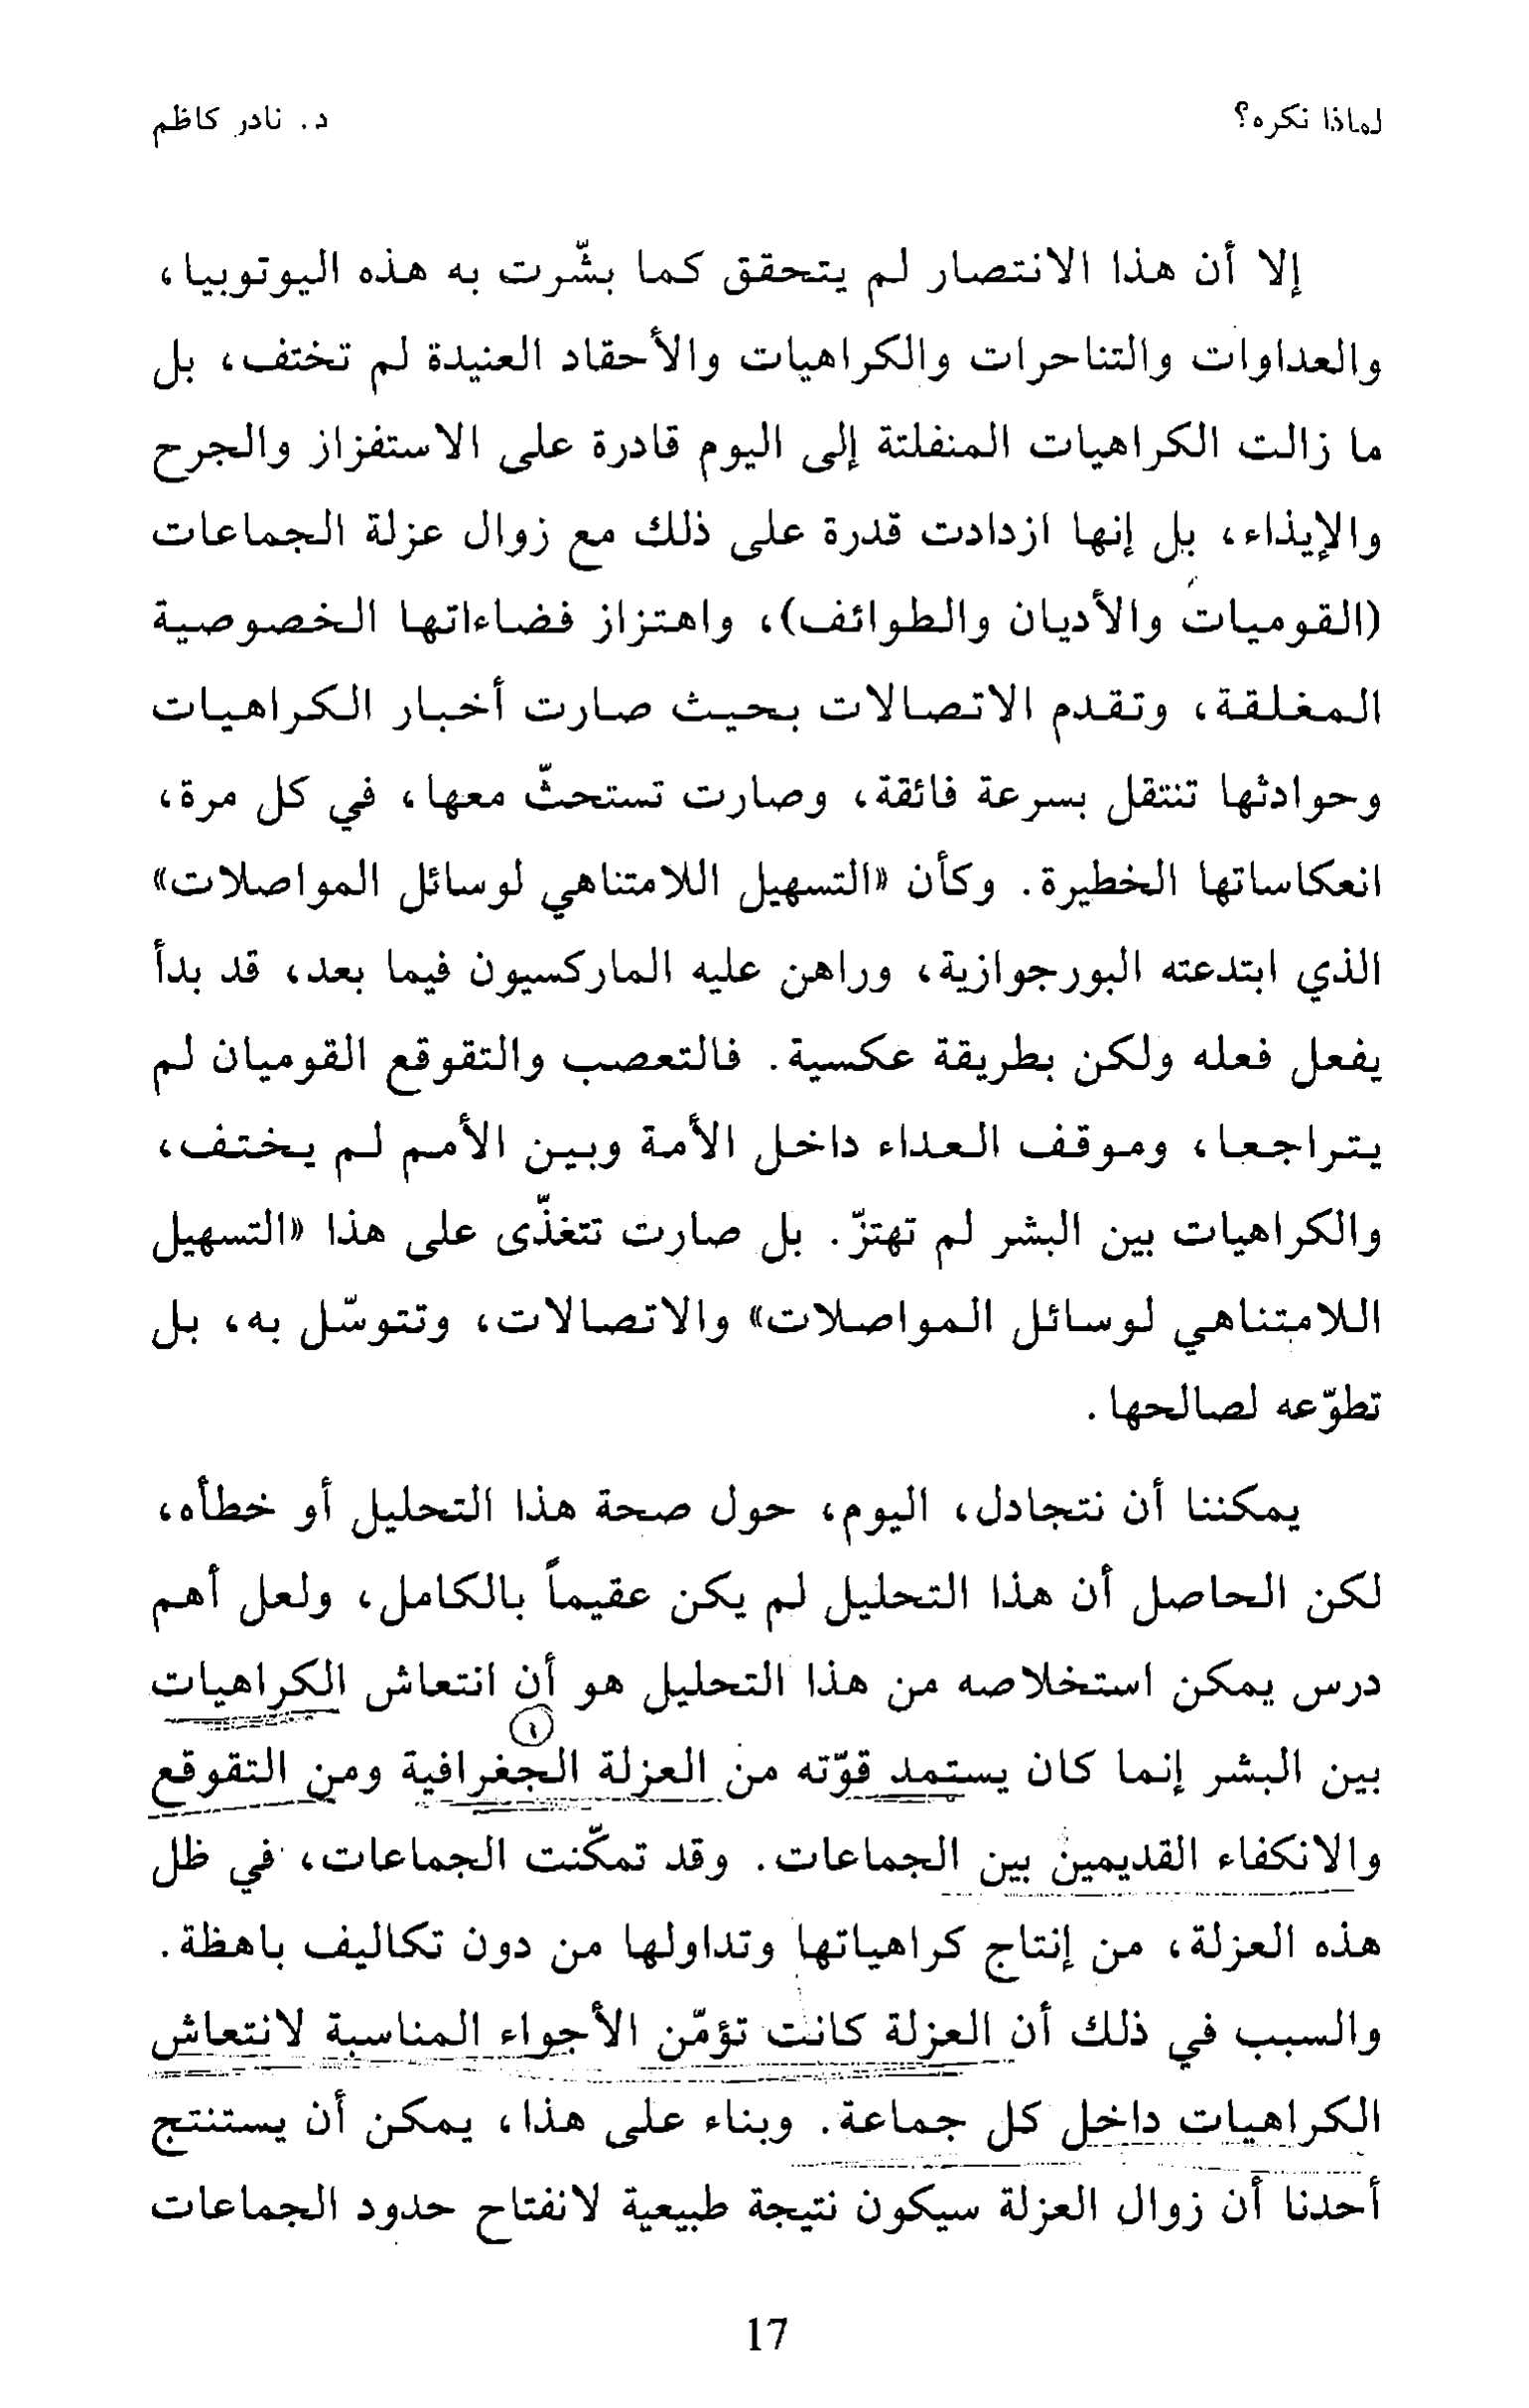 لماذا نكره؟ د. نادر كاظم
إلا أن هذا الانتصار لم يتحقق كما بشّرت به هذه اليوتوبيا،
والعداوات والتناحرات والكراهيات والأحقاد العنيدة لم تختف، بل
ما زالت الكراهيات المنفلتة إلى اليوم قادرة على الاستفزاز والجرح
والإيذاء، بل إنها ازدادت قدرة على ذلك مع زوال عزلة الجماعات
(القوميات والأديان والطوائف)، واهتزاز فضاءاتها الخصوصية
المغلقة، وتقدم الاتصالات بحيث صارت أخبار الكراهيات
وحوادثها تنتقل بسرعة فائقة، وصارت تستحثّ معها، في كل مرة،
انعكاساتها الخطيرة. وكأن «التسهيل اللامتناهي لوسائل المواصلات»
الذي ابتدعته البورجوازية، وراهن عليه الماركسيون فيما بعد، قد بدأ
يفعل فعله ولكن بطريقة عكسية. فالتعصب والتقوقع القوميان لم
يتراجعا، وموقف العداء داخل الأمة وبين الأمم لم يختف،
والكراهيات بين البشر لم تهتزّ. بل صارت تتغذّى على هذا «التسهيل
اللامتناهي لوسائل المواصلات» والاتصالات، وتتوسّل به، بل
تطوّعه لصالحها.
يمكننا أن نتجادل، اليوم، حول صحة هذا التحليل أو خطأه،
لكن الحاصل أن هذا التحليل لم يكن عقيماً بالكامل، ولعل أهم
درس يمكن استخلاصه من هذا التحليل هو أن انتعاش الكراهيات
١
بين البشر إنما كان يستمد قوّته من العزلة الجغرافية ومن التقوقع
والانكفاء القديمين بين الجماعات. وقد تمكّنت الجماعات، في ظل
هذه العزلة، من إنتاج كراهياتها وتداولها من دون تكاليف باهظة.
والسبب في ذلك أن العزلة كانت تؤمّن الأجواء المناسبة لانتعاش
الكراهيات داخل كل جماعة. وبناء على هذا، يمكن أن يستنتج
أحدنا أن زوال العزلة سيكون نتيجة طبيعية لانفتاح حدود الجماعات
17